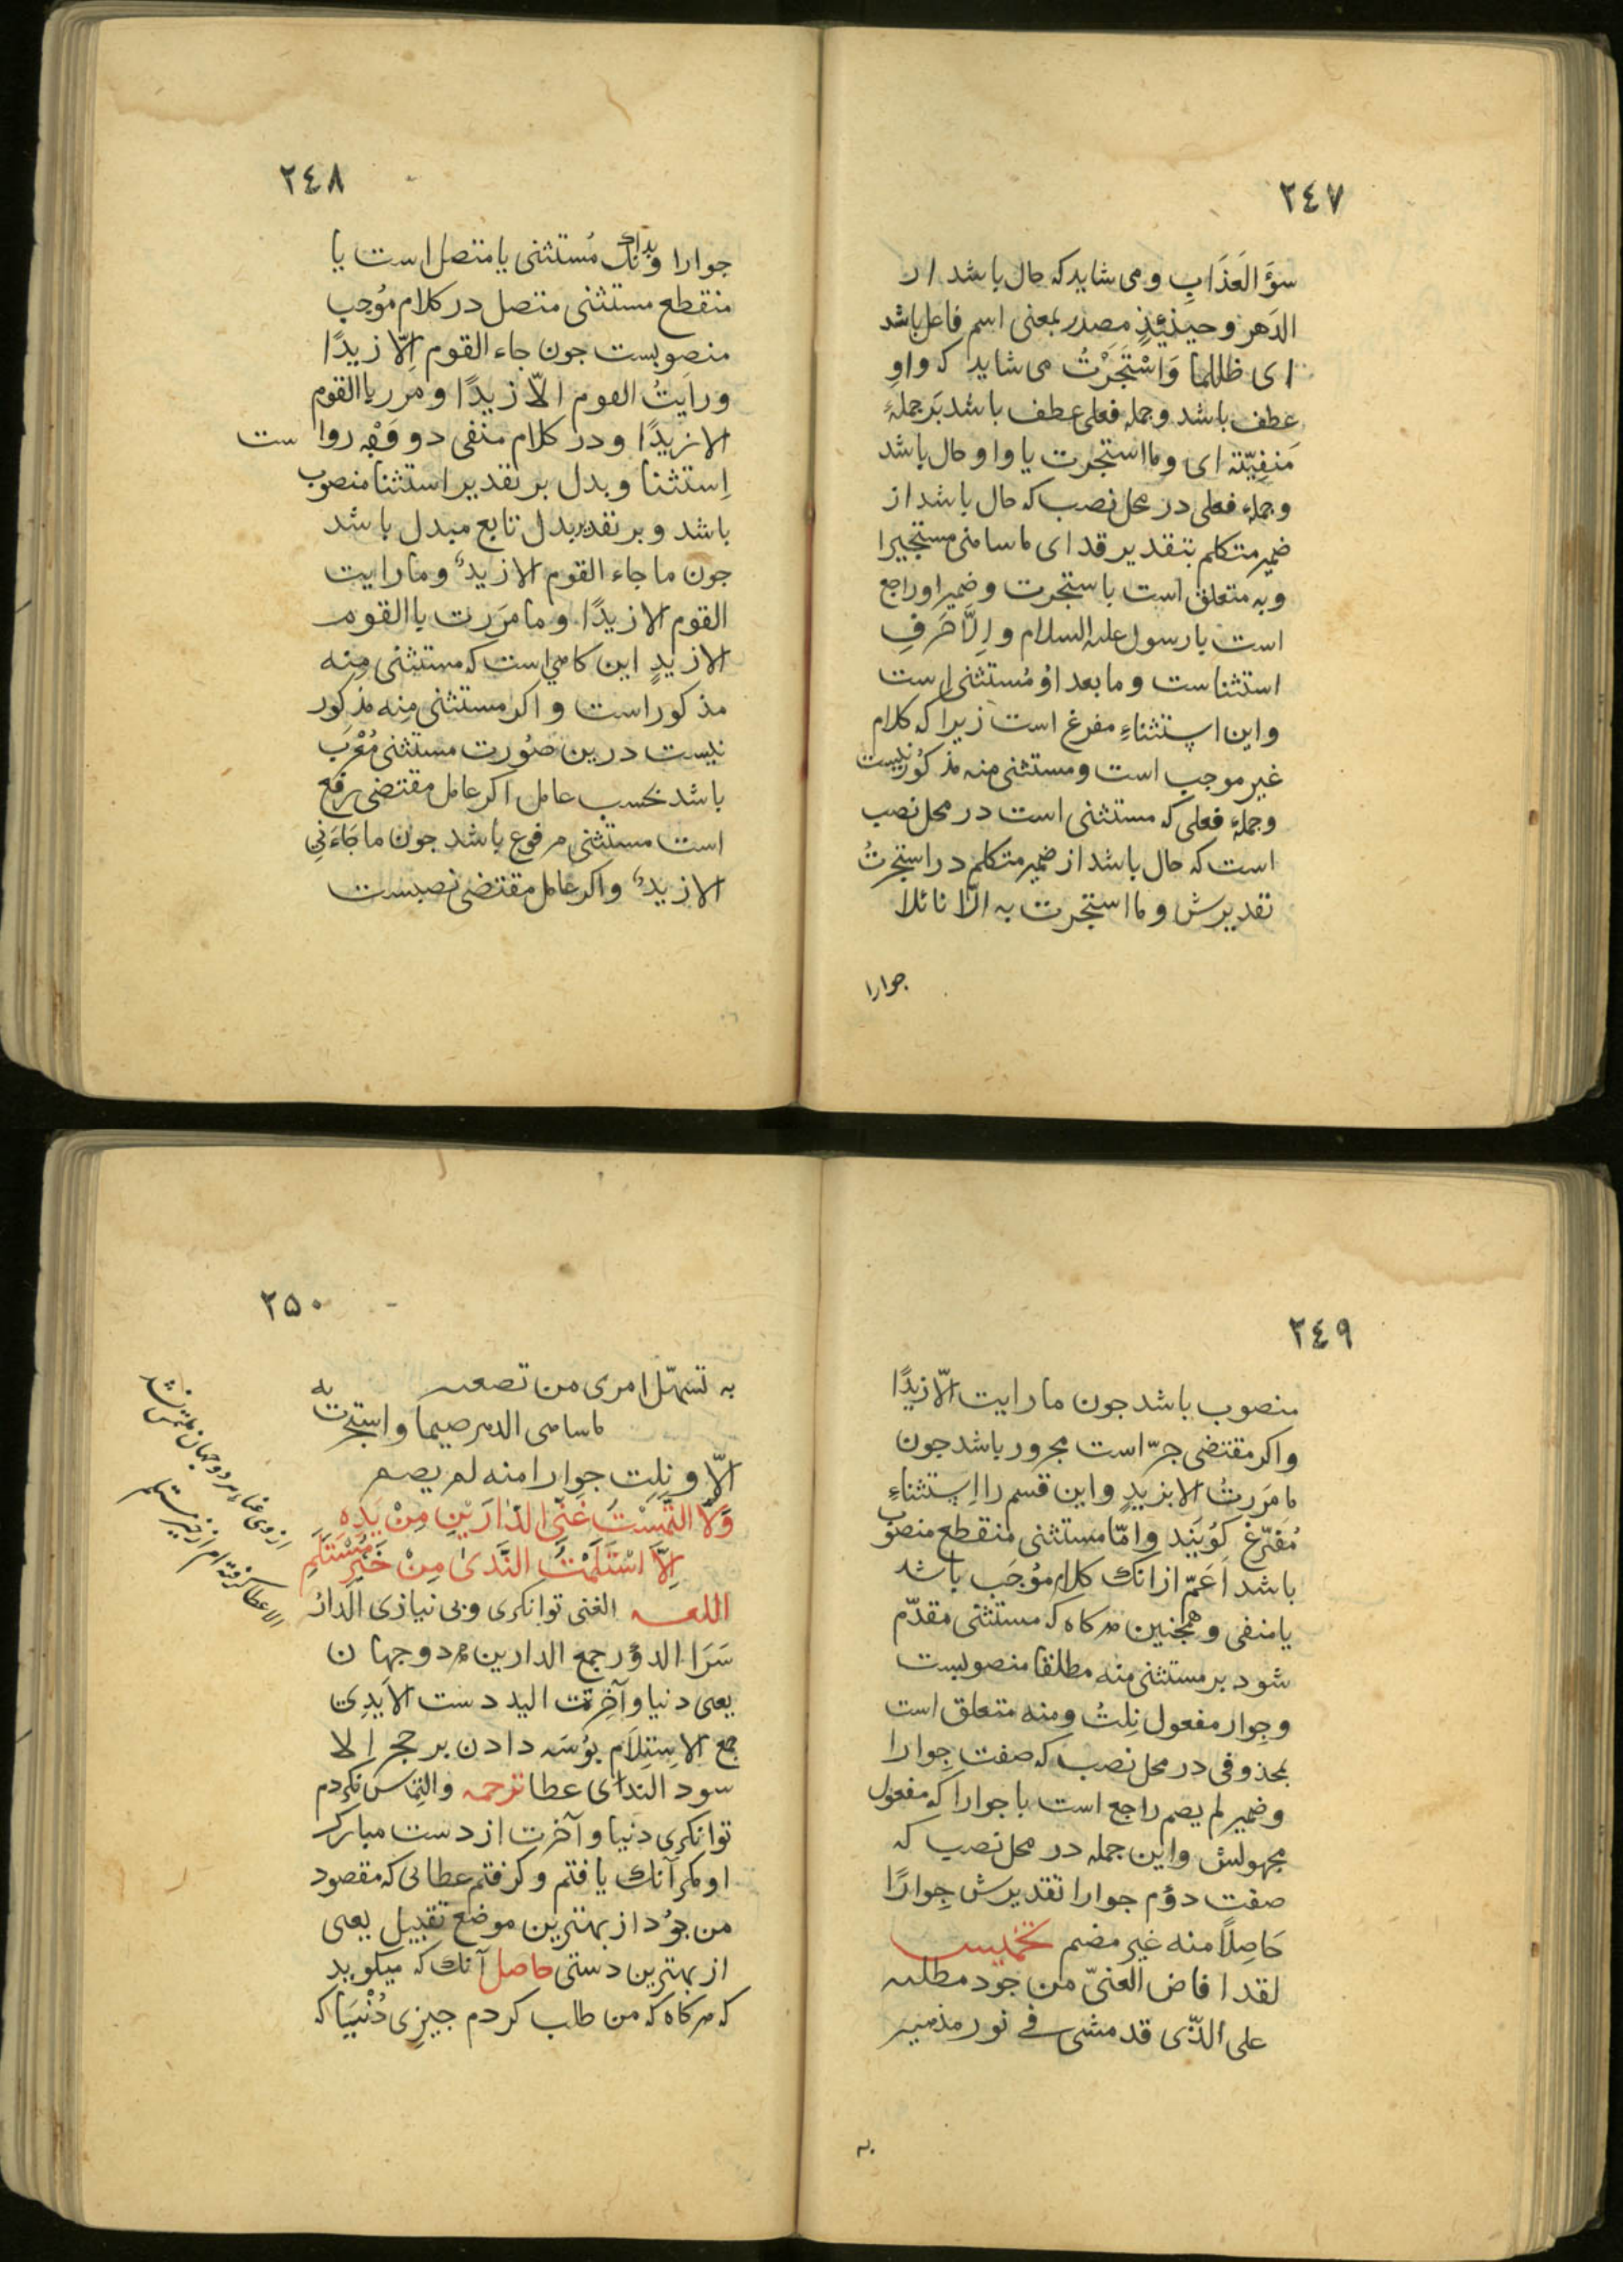 ٢٤٧
سوَٓ العَذَابِ ومی شاید که حال باشد از
الدَهر وحینئِذٍ مصدر بمعنی اسم فاعل باشد
ای ظالما وَاسْتَجَرْتُ می شاید که واوِ
عطف باشد وجمله فعلی عطف باشد بَر جملهٔ
مَنفِیّه ای وما استجرت یا واو حال باشد
وجملهٔ فعلی در محل نصب که حال باشد از
ضمیر متکلم بتقدیر قد ای ما سامنی مستجیرا
وبه متعلق است باستجرت وضمیر او راجع
است با رسول علیه السلام واِلّا حَرفِ
استثناست وما بعد اوُ مُستثنی است
واین استثناءِ مفرغ است زیرا که کلام
غیر موجب است ومستثنی منه مذکوُر نیست
وجملهٔ فعلی که مستثنی است در محل نصب
است که حال باشد از ضمیر متکلم در استجرتُ
تقدیرش وما استجرت به الّا نائلا
جوارا
٢٤٨
جوارا وبدانک مُستثنی یا متصل است یا
منقطع مستثنی متصل در کلام مُوجب
منصوبست جون جاء القوم اِلّا زیدًا
ورایتُ القوم الّا زیدًا ومررت باالقوم
الا زیدًا ودر کلام منفی دو وَجْه رواست
اِستثنا وبدل بر تقدیر استثنا منصوب
باشد وبر تقدیر بدل تابع مبدل باشد
جون ما جاء القوم الا زیدٌ وما رایت
القوم الا زیدًا وما مَرَرت باالقوم
الا زیدٍ این کاهی است که مستثنی مِنه
مذکور است واکر مستثنی مِنه مذکور
نیست درین صُورت مستثنی مُعْرَب
باشد بحسب عامل اکر عامل مقتضی رفع
است مستثنی مرفوع باشد جون ما جَاءَنِی
الا زیدٌ واکر عامل مقتضی نصبست
٢٤٩
منصوب باشد جون ما رایت الّا زیدًا
واکر مقتضی جرّ است مجرور باشد جون
ما مَرَرتُ الا بزیدٍ واین قسم را اِستثناءِ
مُفرّغ کوُیَند وامّا مستثنی منقطع منصوُب
باشد اَعَمّ ازانک کلام مُوجَب باشد
یا منفی وهمجنین هرکاه که مستثنی مقدّم
شود بر مستثنی منه مطلقا منصوبست
وجِوار مفعول نِلتُ ومنه متعلق است
بمحذوفی در محل نصب که صفت جِوارا
وضمیر لم یضم راجع است با جوارا که مفعول
مجهولش واین جمله در محل نصب که
صفت دوُم جوارا تقدیرش جِوارًا
حَاصِلًا منه غیر مضم تخمیس
لقد افاض الغنیّ من جود مطلبه
علی الذّی قد مشی فی نور مذهبه
به
٢٥٠
به تسهّل امری من تصعبه
ما سامنی الدهر ضیما واستجرت به
الّا ونِلت جوارا منه لم یضم
وَلَا الْتَمَسْتُ غِنَی الدَّارَیْنِ مِنْ یَدِهِ
اِلَّا اسْتَلَمْتُ النَّدیٰ مِنْ خَیْرِ مُسْتَلَمِ
اللغه الغنی توانکری وبی نیازی الدارُ
سَرَا الدوُر جمع الدارین هر دو جهان
یعنی دنیا وآخرت الید دست الایدِی
جمع الاِستِلَام بوُسَه دادن بر حجر اِلا
سود الندای عطا ترجمه والتِماس نکردم
توانکرِی دنیا وآخرت از دست مبارک
او مکر آنک یافتم وکرفتم عطائی که مقصود
من بوُد از بهترین موضع تقبیل یعنی
از بهترین دستی حاصل آنک که میکوید
که هرکاه که من طلب کردم جیزِی دُنْیَیا که
از وی غناءِ هر دو جهان ملتمس نشد
الا عطا کرفته ام از خیر مستلم